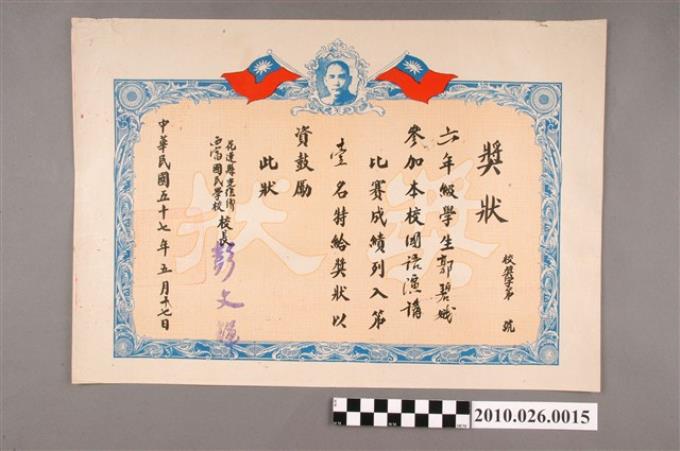 獎狀
校獎字第 號
六年級學生郭碧娥
參加本校國語演講
比賽成績列入第
壹名特給獎狀以
資鼓勵
此狀
花蓮縣光復鄉
西富國民學校 校長 彭文
中華民國五十七年五月廿七日
獎狀
2010.026.0015